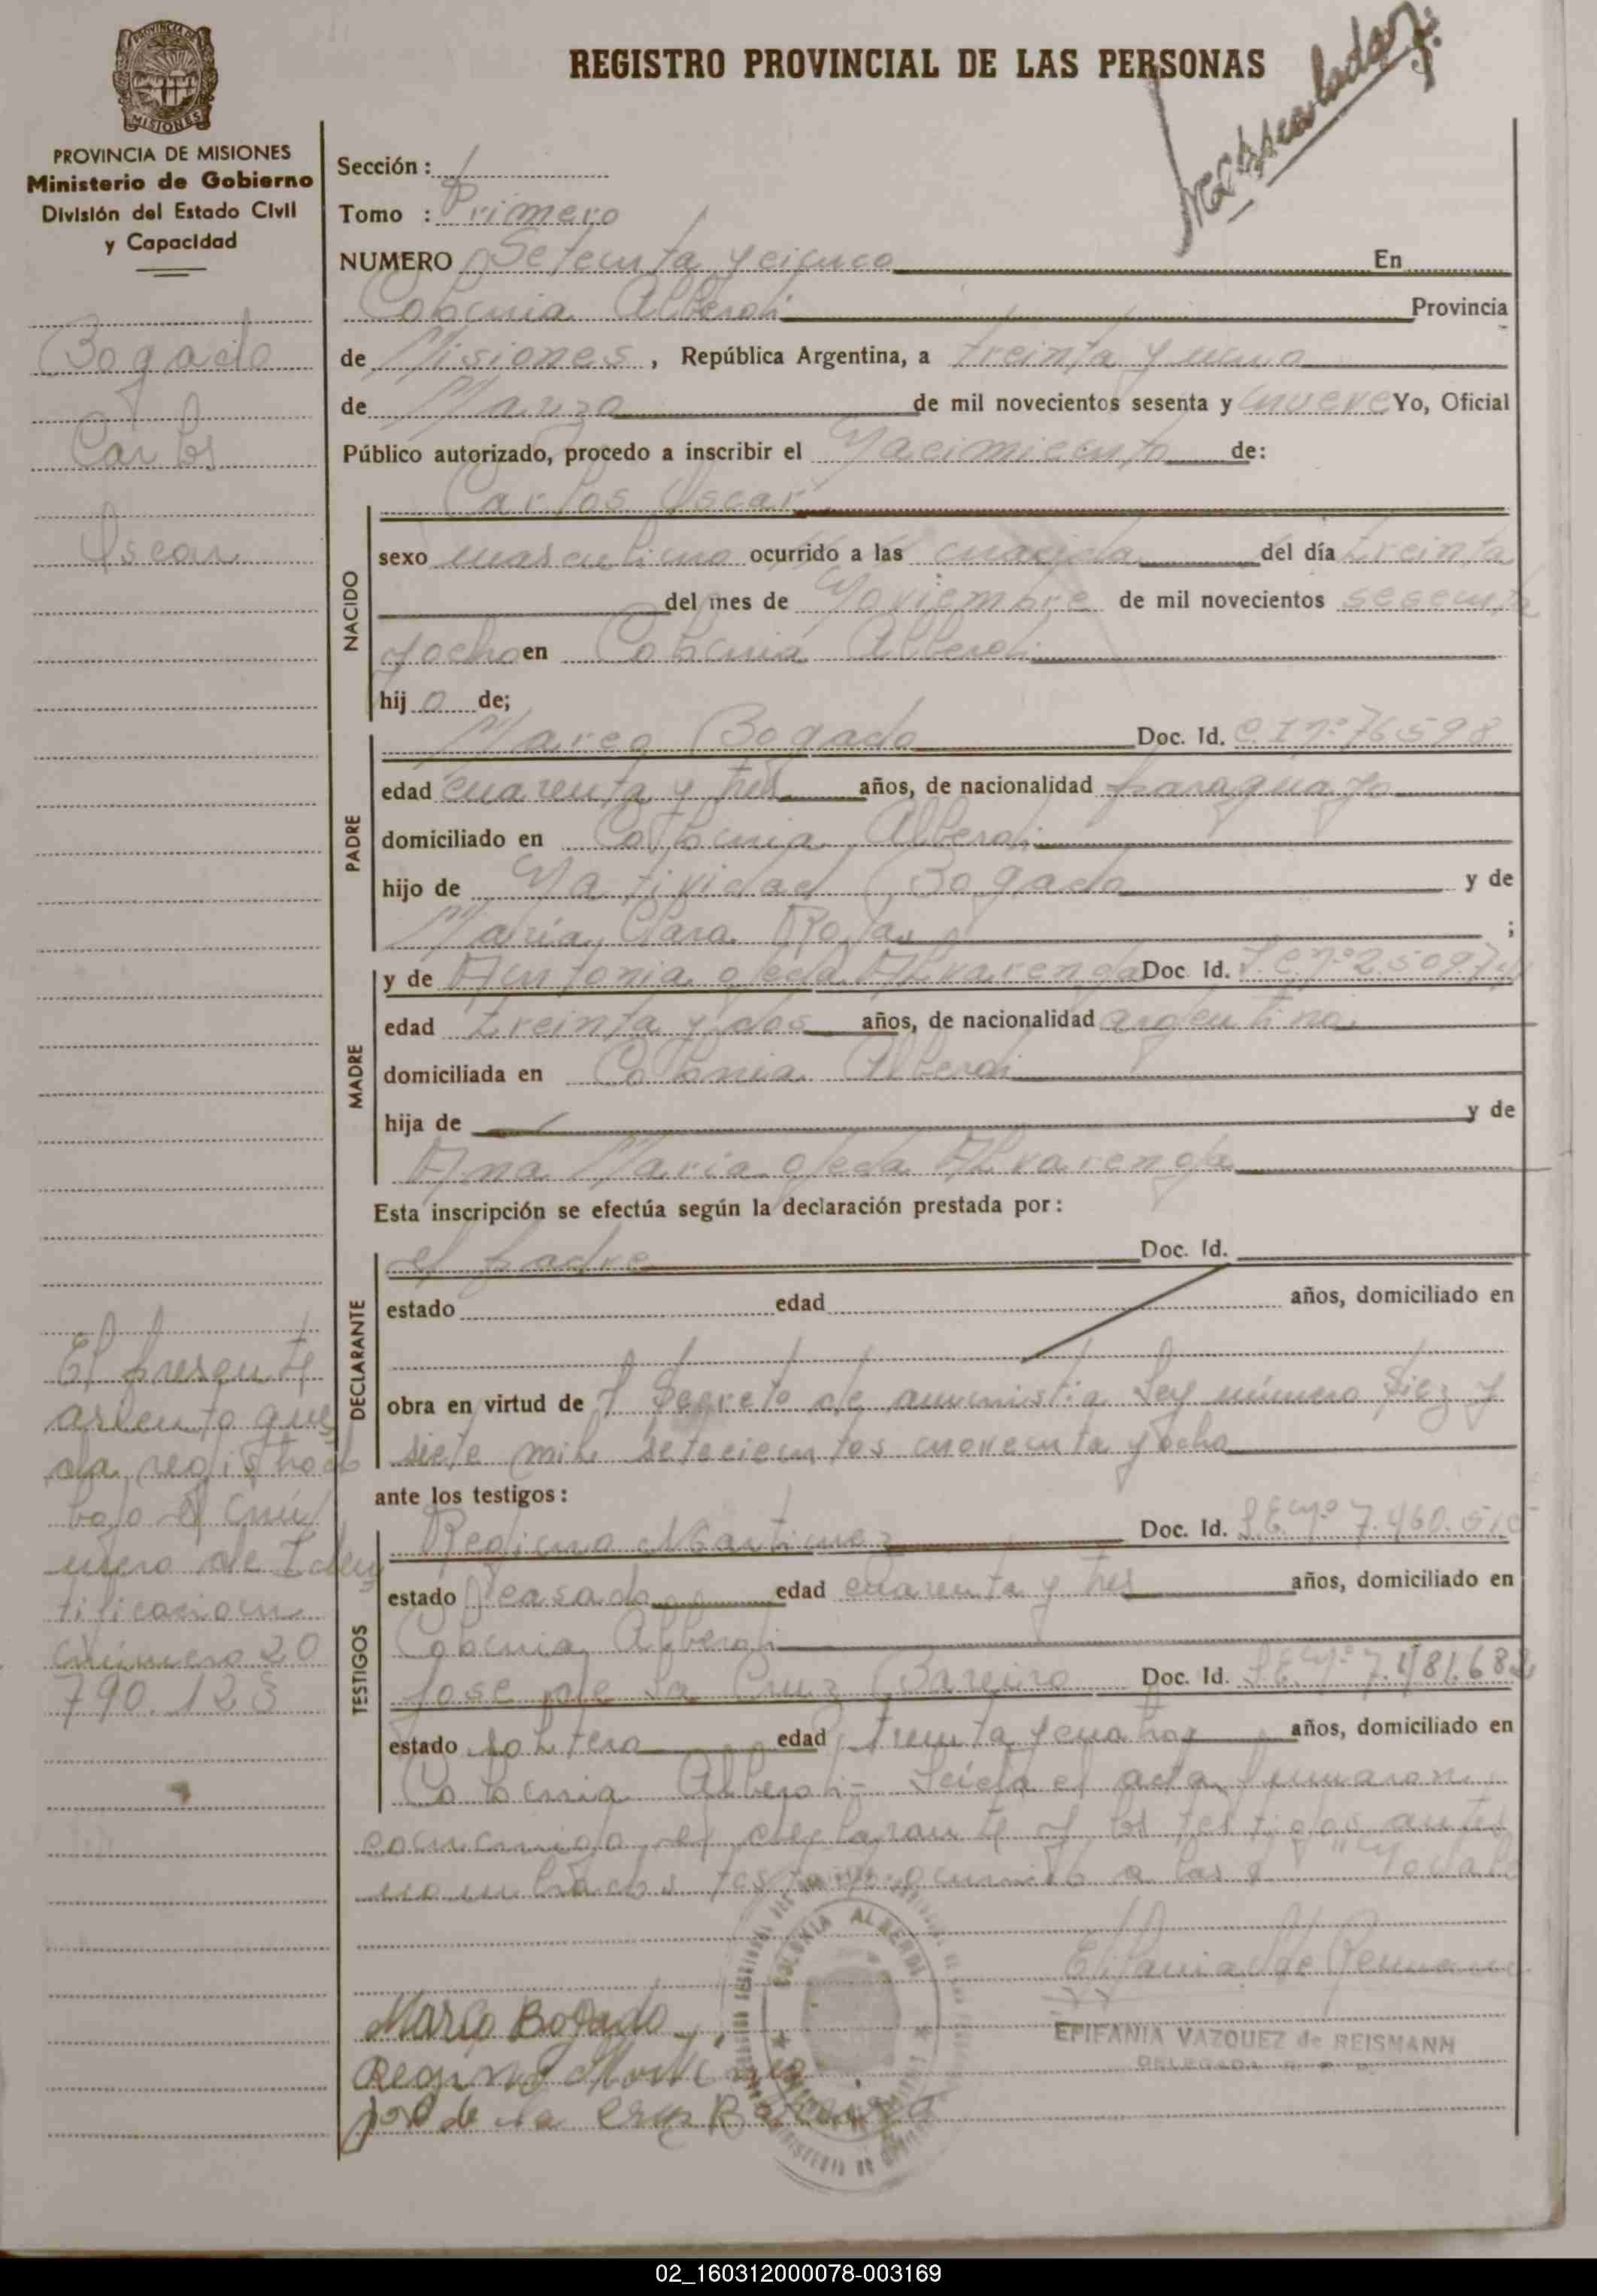 REGISTRO PROVINCIAL DE LAS PERSONAS
MISIONES
PROVINCIA DE MISIONES
Ministerio de Gobierno
División del Estado Civil
y Capacidad
Bogado
Carlos
Oscar
El presente
asiento que
da registrado
bajo el nú
mero de Iden
tificacion
número 20
790.123
Sección : /
Tomo : Primero
NUMERO Setenta y cinco En
Colonia Alberdi Provincia
de Misiones, República Argentina, a treinta y uno
de Marzo de mil novecientos sesenta y nueve Yo, Oficial
Público autorizado, procedo a inscribir el Nacimiento de:
NACIDO
Carlos Oscar
sexo masculino ocurrido a las del día treinta
del mes de Noviembre de mil novecientos sesenta
y ocho en Colonia Alberdi
hijo de;
PADRE
Marco Bogado Doc. Id. C.I nº 76598
edad cuarenta y tres años, de nacionalidad paraguayo
domiciliado en Colonia Alberdi
hijo de Natividad Bogado y de
Maria Clara ;
MADRE
y de Antonia Ojeda Alvarenga Doc Id.
edad treinta y dos años, de nacionalidad argentina
domiciliada en Colonia Alberdi
hija de y de
Ana Maria Ojeda Alvarenga
Esta inscripción se efectúa según la declaración prestada por:
DECLARANTE
el padre Doc. Id.
estado edad años, domiciliado en
obra en virtud de Decreto de amnistia Ley número Diez y
siete mil setecientos noventa y ocho
ante los testigos:
TESTIGOS
Regino Martinez Doc. Id. L.E. nº 7.460.515
estado casado edad cuarenta y tres años, domiciliado en
Colonia Alberdi
Jose de la Cruz Bareiro Doc. Id. L.E. nº 7.481.682
estado soltero edad treinta y cuatro años, domiciliado en
Colonia Alberdi - Leida el acta, firmaron
conmigo el declarante y los testigos ante
COLONIA ALBERDI
Marco Bogado
Regino Martinez
Jose de la Cruz Bareiro
EPIFANIA VAZQUEZ de REISMANN
DELEGADA
02_160312000078-003169